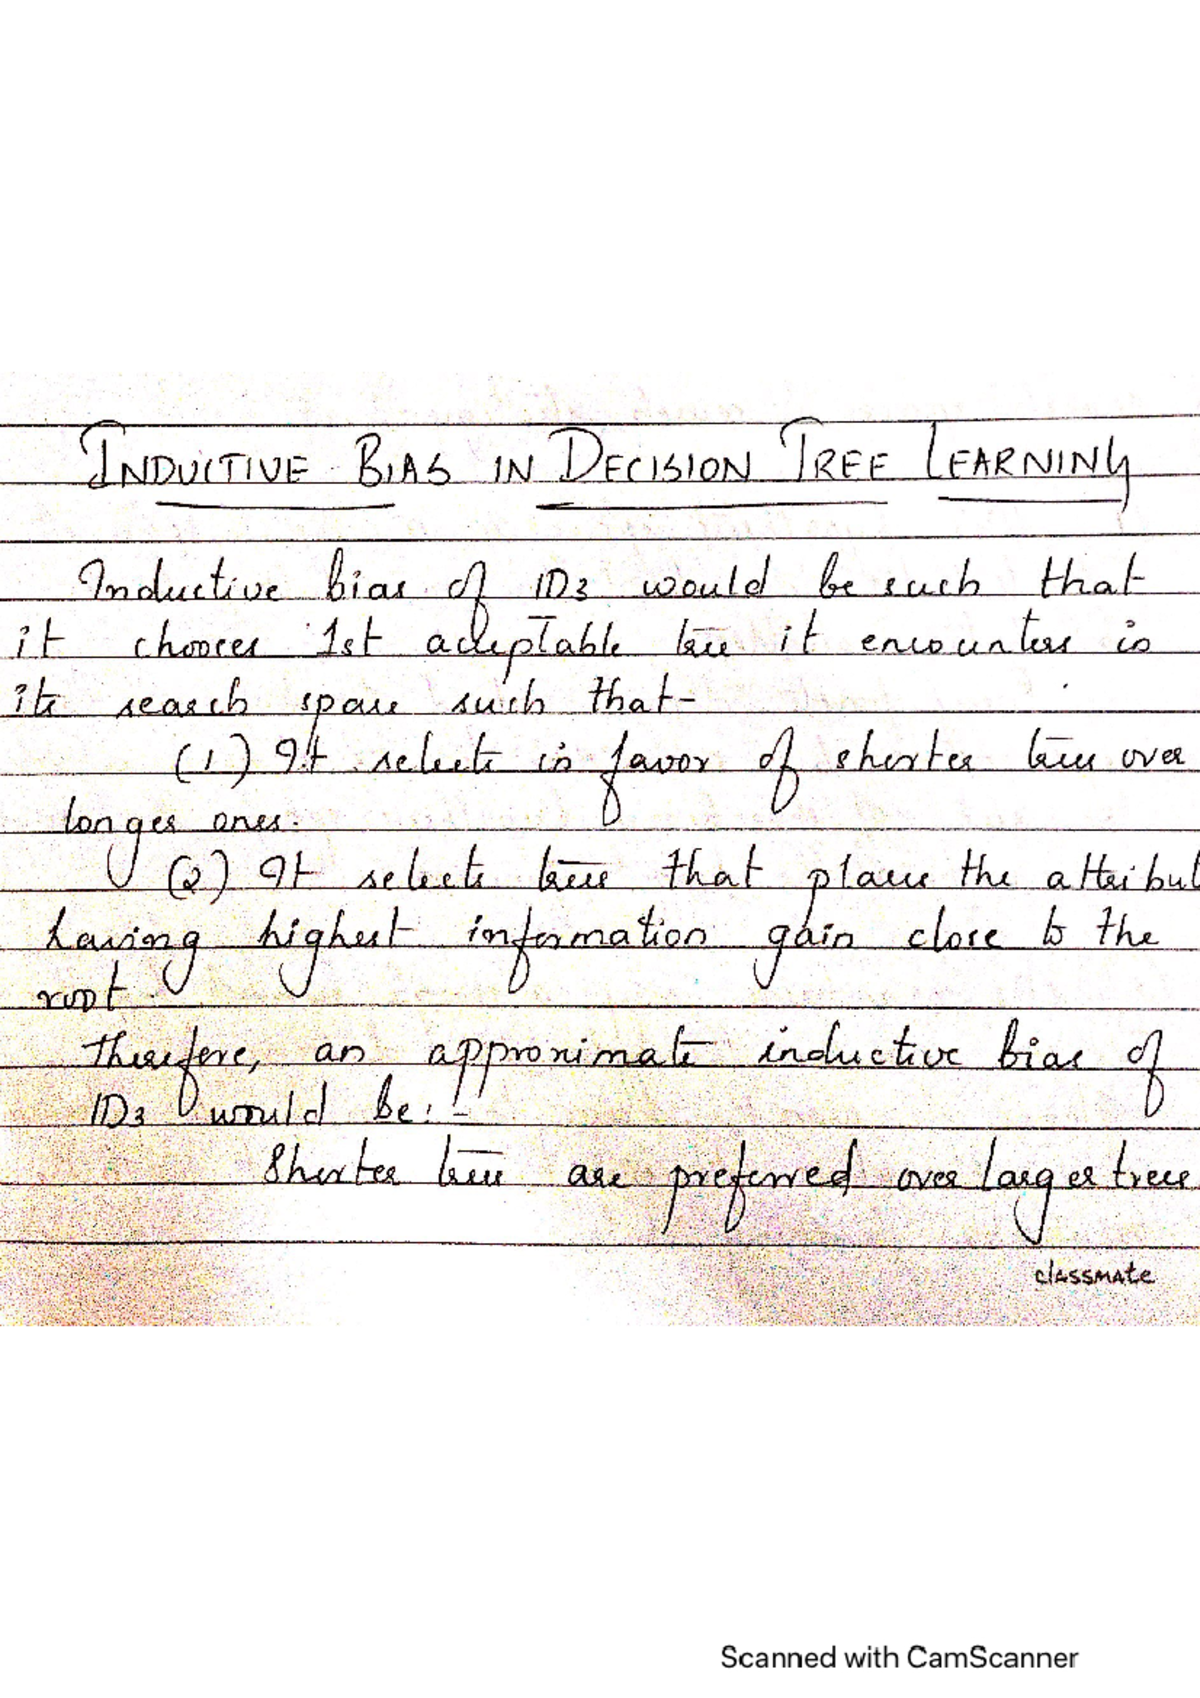 INDUCTIVE BIAS IN DECISION TREE LEARNING
Inductive bias of ID3 would be such that
it chooses 1st acceptable tree it encounters in
its search space such that-
(1) It selects in favor of shorter trees over
longer ones.
(2) It selects trees that places the attribut
having highest information gain close to the
root.
Therefore, an approximate inductive bias of
ID3 would be:-
Shorter trees are preferred over larger trees
classmate
Scanned with CamScanner